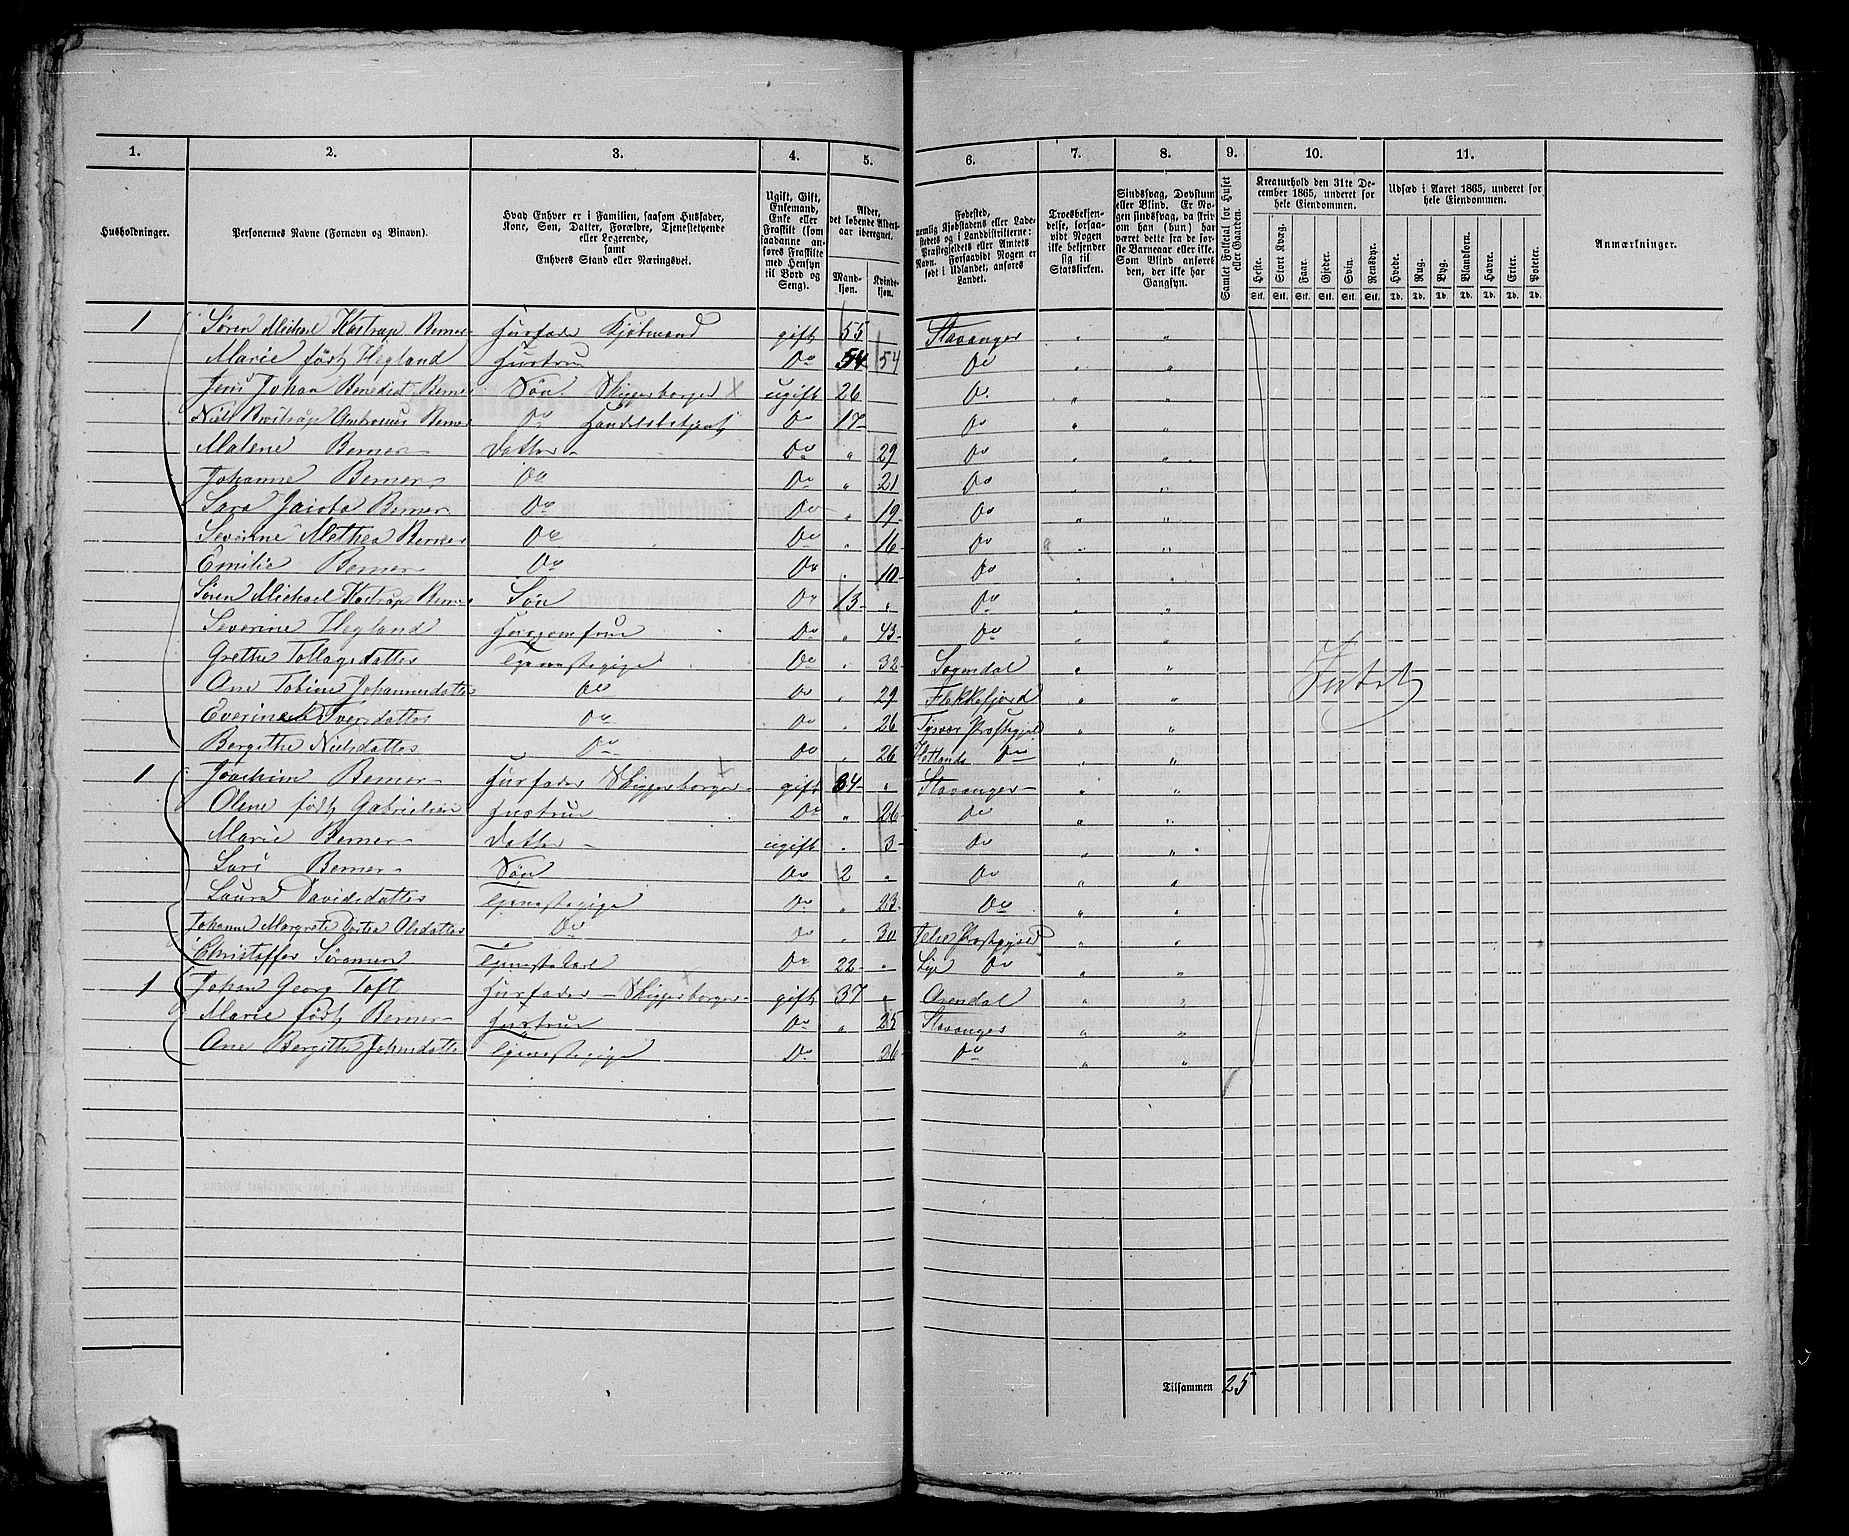 1. 2. 3. 4. 5. 6. 7. 8. 9. 10. 11.
Husholdninger.
Personernes Navne (Fornavn og Binavn).
Hvad Enhver er i Familien, saasom Husfader,
Kone, Søn, Datter, Forældre, Tjenestetyende
eller Logerende,
samt
Enhvers Stand eller Næringsvei.
Ugift, Gift,
Enkemand,
Enke eller
Fraskilt (som
saadanne an-
føres Fraskilte
med Hensyn
til Bord og
Seng).
Alder,
det løbende Alders-
aar iberegnet.
Mand-
kjøn.
Kvinde-
kjøn.
Fødested,
nemlig Kjøbstadens eller Lade-
stedets og i Landdistrikterne:
Præstegjeldets eller Amtets
Navn. Forsaavidt Nogen er
født i Udlandet, anføres
Landet.
Troesbekjen-
delse, forsaa-
vidt Nogen
ikke bekjender
sig til
Statskirken.
Sindssvag, Døvstum
eller Blind. Er No-
gen sindssvag, da skriv
om han (hun) har
været dette fra de før-
ste Barneaar eller ikke.
Som Blind anføres
den, der ikke har
Gangsyn.
Samlet Folketal for Huset
eller Gaarden.
Kreaturhold den 31te De-
cember 1865, underet for
hele Eiendommen.
Heste. Stort Kvæg. Faar. Gjeder. Svin. Rensdyr.
Stk. Stk. Stk. Stk. Stk. Stk.
Udsæd i Aaret 1865, underet for
hele Eiendommen.
Hvede. Rug. Byg. Blandkorn. Havre. Erter. Poteter.
Td. Td. Td. Td. Td. Td. Td.
Anmærkninger.
1 Søren Michael Kastrup Berner Husfader Kjøbmand gift 55 Stavanger " "
Marie født Hegland Hustru Do 54 54 Do " "
Jens Johan Benedict Berner Søn Skipperborger ugift 26 Do " "
Niels Ambrosius Berner Do Handelsbetjent Do 17 Do " "
Malene Berner Datter Do " 29 Do " "
Johanne Berner Do Do " 21 Do " "
Sara Jacoba Berner Do Do " 19 Do " "
Severine Methea Berner Do Do " 16 Do " "
Emilie Berner Do Do " 10 Do " "
Søren Michael Kastrup Berner Søn Do 13 " Do " "
Severine Hegland Husjomfru Do " 43 Do " "
Grethe Tollagsdatter Tjenestepige Do " 32 Sogendal " "
Ane Tobine Johannesdatter Do Do " 29 Flekkefjord " "
Everine Iversdatter Do Do " 26 Tysvær Præstegjeld " "
Bergithe Nielsdatter Do Do " 26 Hetlands Do " "
1 Joachim Berner Husfader Skipperborger gift 34 " Stavanger " "
Olene født Gabrielsen Hustru Do " 26 Do " "
Marie Berner Datter ugift " 3 Do " "
Lars Berner Søn Do 2 " Do " "
Laura Davidsdatter Tjenestepige Do " 23 Do " "
Johanne Margrete Dortea Olsdatter Do Do " 30 Jelse Præstegjeld " "
Christoffer Sørensen Tjenestekarl Do 22 " Lye Do " "
1 Johan Georg Toft Husfader Skipperborger gift 37 " Arendal " "
Marie født Berner Hustru Do " 25 Stavanger " "
Ane Bergitte Johnsdatter Tjenestepige Do " 36 Do " "
Intet
Tilsammen 25